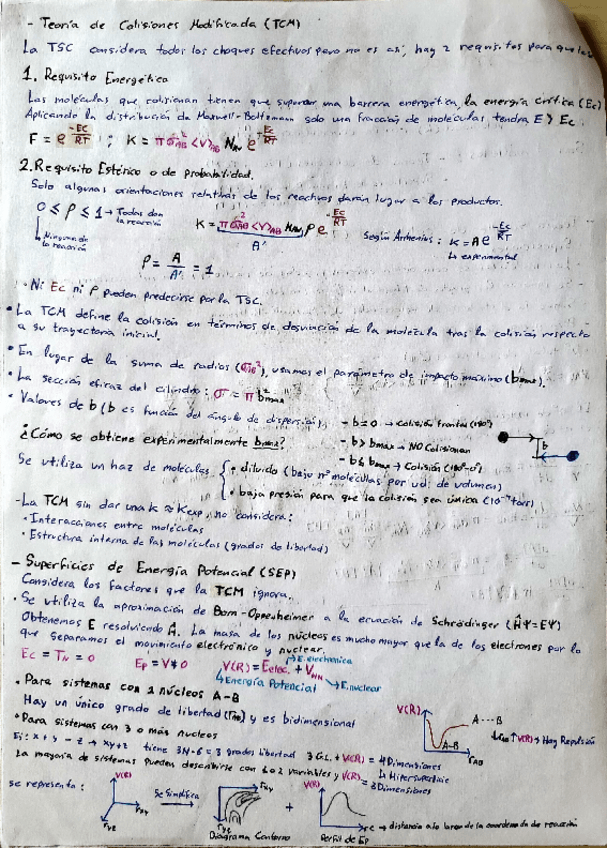 - Teoría de Colisiones Modificada (TCM)
La TSC considera todos los choques efectivos pero no es así, hay 2 requisitos para que
1. Requisito Energético
Las moléculas que colisionan tienen que superar una barrera energética, la energía crítica (Ec)
Aplicando la distribución de Maxwell-Boltzmann solo una fracción de moléculas tendrá E > Ec
F = e^(-Ec/RT) ; K = π σ²AB <V>AB Nav e^(-Ec/RT)
2. Requisito Estérico o de probabilidad.
Solo algunas orientaciones relativas de los reactivos darán lugar a los productos.
0 ≤ p ≤ 1 → Todas dan la reacción
Ninguna da la reacción
K = π σ²AB <V>AB Nav p e^(-Ec/RT)
A'
Según Arrhenius: K = A e^(-Ec/RT)
↳ experimental
p = A/A' = 1
· Ni Ec ni p pueden predecirse por la TSC.
• La TCM define la colisión en términos de desviación de la molécula tras la colisión respecto
a su trayectoria inicial.
• En lugar de la suma de radios (σAB²), usamos el parámetro de impacto máximo (bmax).
• La sección eficaz del cilindro: σ = π b²max
• Valores de b (b es función del ángulo de dispersión):
- b = 0 → Colisión frontal (180º)
- b > bmax → NO Colisionan
- b ≤ bmax → Colisión (180º-0º)
b
¿Cómo se obtiene experimentalmente bmax?
Se utiliza un haz de moléculas
• diluido (bajo nº moléculas por ud. de volumen)
• baja presión para que la colisión sea única
- La TCM sin dar una K ≈ Kexp, no considera:
· Interacciones entre moléculas
· Estructura interna de las moléculas (grados de libertad)
- Superficies de Energía Potencial (SEP)
Considera los factores que la TCM ignora.
· Se utiliza la aproximación de Born-Oppenheimer a la ecuación de Schrödinger (ĤΨ=EΨ)
Obtenemos E resolviendo Ĥ. La masa de los núcleos es mucho mayor que la de los electrones por lo
que separamos el movimiento electrónico y nuclear.
Ec = TN = 0
Ep = V ≠ 0
V(R) = Eelec. + VNN
→ E. electrónica
↳ Energía Potencial
→ E. nuclear
• Para sistemas con 2 núcleos A-B
Hay un único grado de libertad (rAB) y es bidimensional
V(R)
A---B
A-B
rAB
↓rAB ↑V(R) → Hay Repulsión
• Para sistemas con 3 o más núcleos
Ej: x + y - z → xy + z tiene 3N-6 = 3 grados libertad 3 G.L. + V(R) = 4 Dimensiones
↳ Hipersuperficie
La mayoría de sistemas pueden describirse con 1 o 2 variables y V(R) = 3 Dimensiones
Se representa:
V(R)
rxy
ryz
Se Simplifica
rxy
ryz
Diagrama Contorno
+
V(R)
rc → distancia a lo largo de la coordenada de reacción
Perfil de Ep